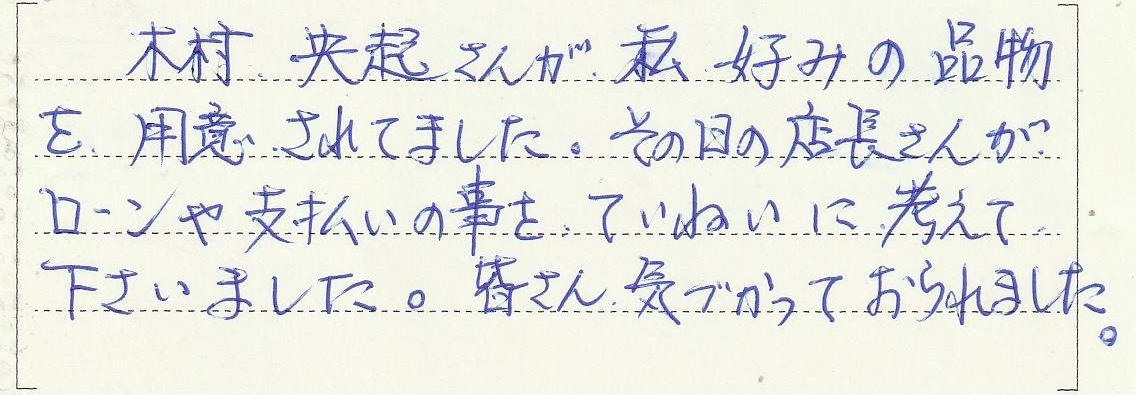 木村 央起さんが 私 好みの 品物
を 用意 されてました。その日の店長さんが
ローンや支払いの事を ていねいに 考えて
下さいました。皆さん 気づかって おられました。